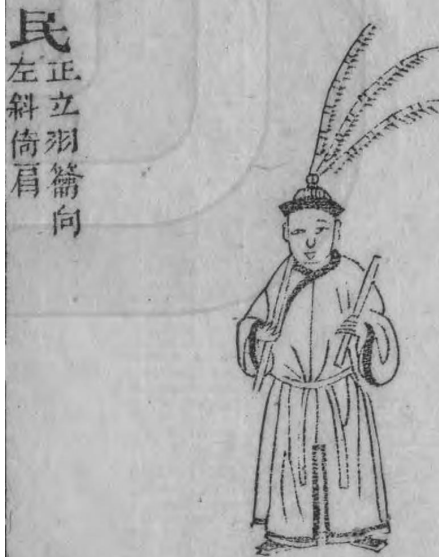 民
正立羽籥向
左斜倚肩